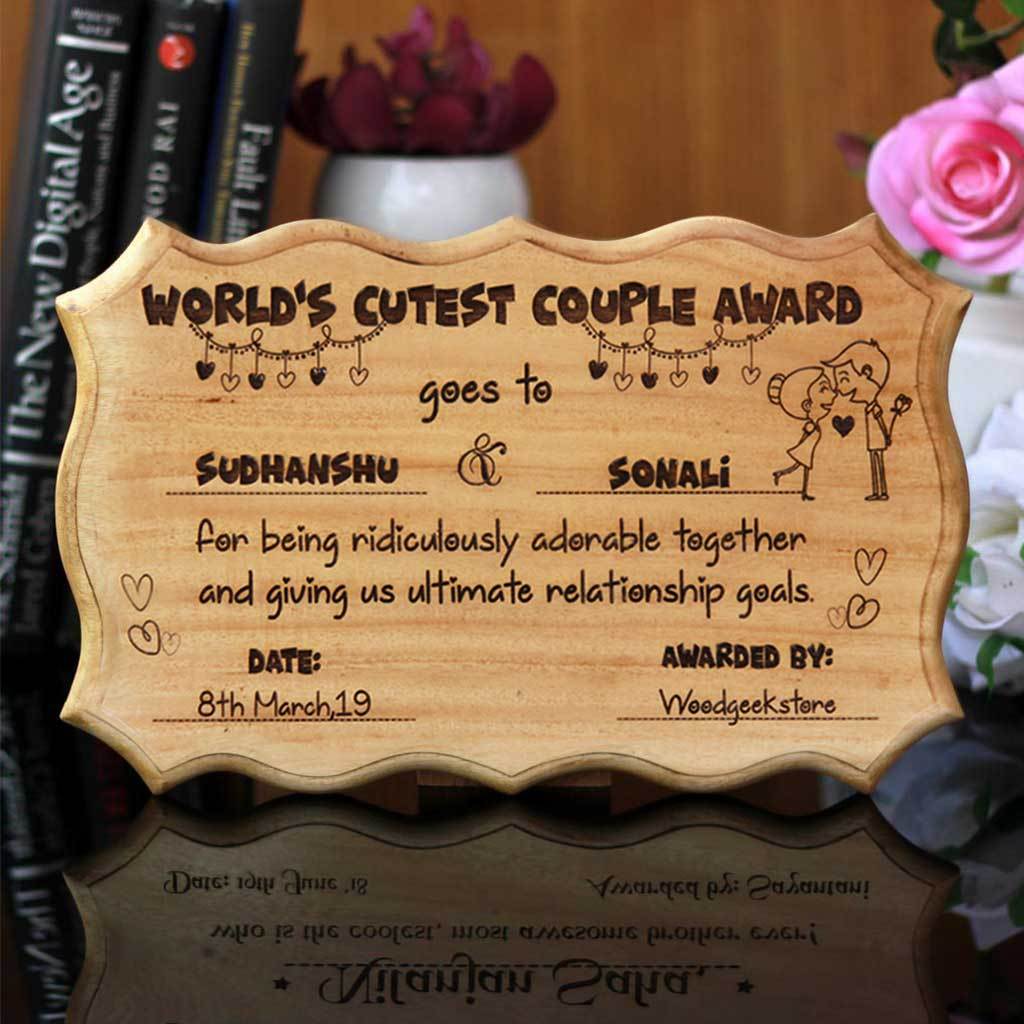 WORLD'S CUTEST COUPLE AWARD
goes to
SUDHANSHU & SONALI
for being ridiculously adorable together
and giving us ultimate relationship goals.
DATE: AWARDED BY:
8th March,19 Woodgeekstore
The New Digital Age
IVAN
GOD
Fault
Date: 19th June '18 Awarded by: Sayantani
who is the coolest, most awesome brother ever!
Nilanjan Saha,